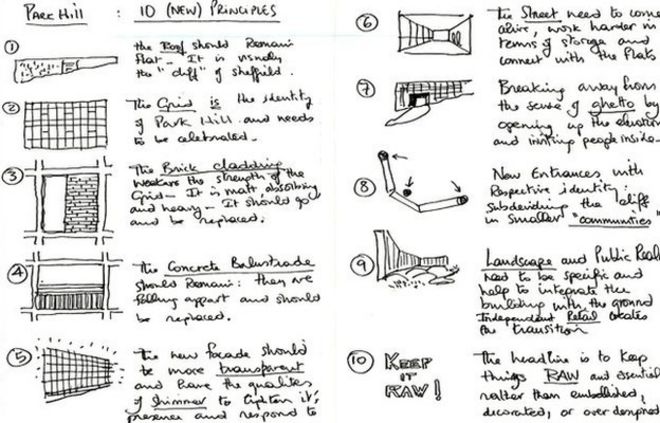 PARK HILL : 10 (NEW) PRINCIPLES
1
the Roof should Remain
flat - It is visually
the "cliff" of sheffield.
2
The Grid is the identity
of Park Hill and needs
to be celebrated.
3
The Brick cladding
weakens the strength of the
Grid - It is matt, absorbing
and heavy - It should go
and be replaced.
4
The Concrete Balustrade
should Remain: they are
falling appart and should
be replaced.
5
The new facade should
be more transparent
and have the qualities
of shimmer to lighten it's
presence and respond to
6
The Street need to come
alive, work harder in
terms of storage and
connect with the flats
7
Breaking away from
the sense of ghetto by
opening up the elevation
and inviting people inside.
8
New Entrances with
Respective identity:
Subdividing the cliff
in smaller "communities"
9
Landscape and Public Real
need to be specific and
help to integrate the
building with the ground
Independent Retail locates
the transition
10
KEEP
IT
RAW!
The headline is to keep
things RAW and essential
rather than embellished,
decorated, or over designed